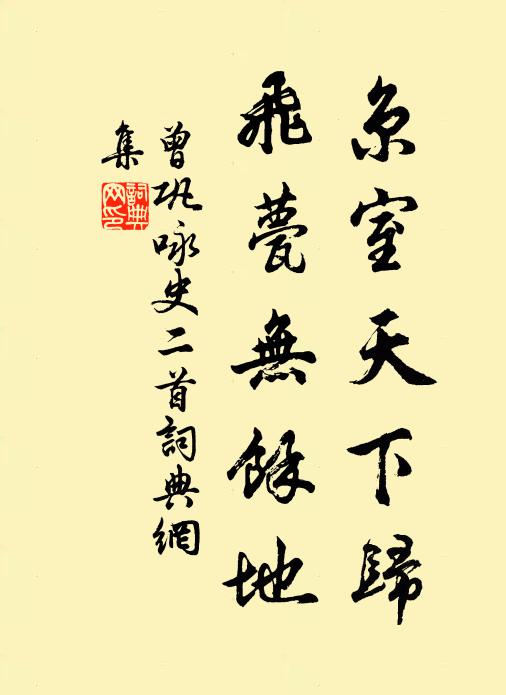 京室天下歸
飛甍無餘地
曾巩咏史二首詞典網
集
詞典网印